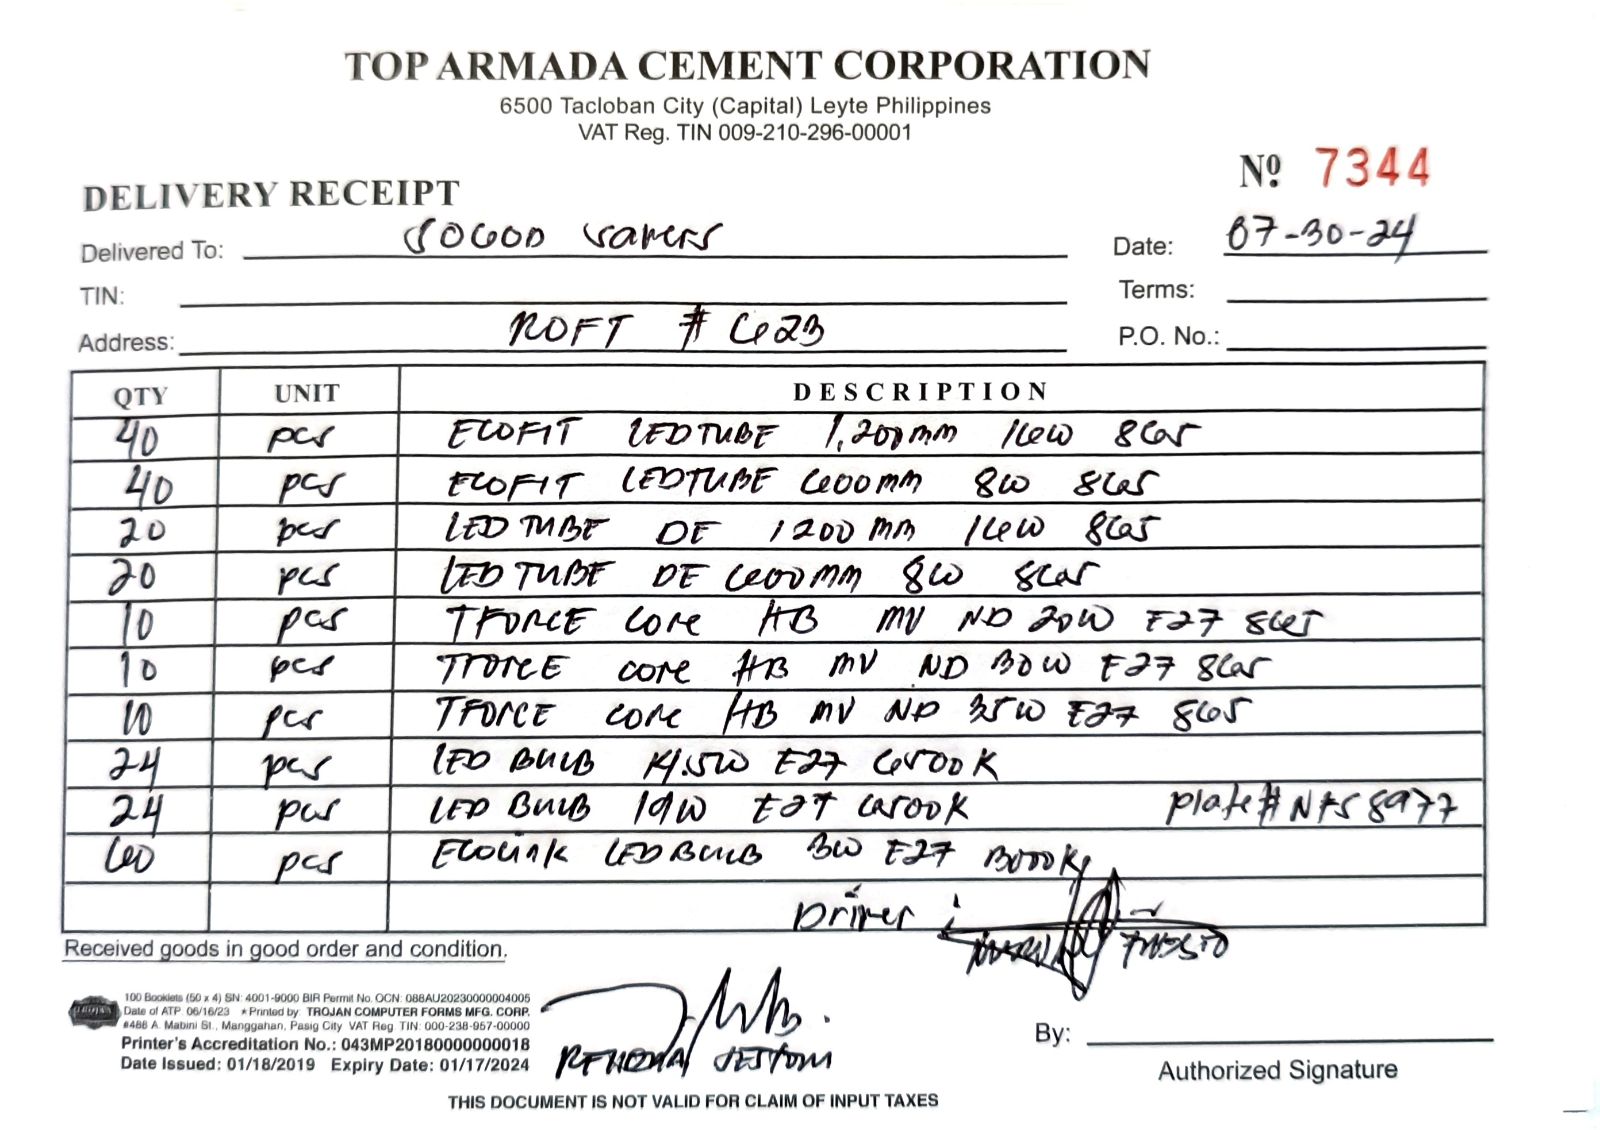 TOP ARMADA CEMENT CORPORATION
6500 Tacloban City (Capital) Leyte Philippines
VAT Reg. TIN 009-210-296-00001
Nº 7344
DELIVERY RECEIPT
Delivered To: SOGOD SAVERS
Date: 07-30-24
TIN:
Terms:
Address: ROFT # 623
P.O. No.:
QTY UNIT DESCRIPTION
40 pcs ECOFIT LEDTUBE 1,200mm 16W 865
40 pcs ECOFIT LEDTUBE 600mm 8W 865
20 pcs LEDTUBE DE 1200mm 16W 865
20 pcs LEDTUBE DE 600mm 8W 865
10 pcs TFORCE core HB MV ND 20W E27 865
10 pcs TFORCE core HB MV ND 30W E27 865
10 pcs TFORCE core HB MV ND 35W E27 865
24 pcs LED BULB 14.5W E27 6500K
24 pcs LED BULB 19W E27 6500K plate# NFS 8977
60 pcs Ecolink LEDBULB 3W E27 3000K
Driver :
Received goods in good order and condition.
100 Booklets (50 x 4) SN: 4001-9000 BIR Permit No. OCN: 088AU20230000004005
Date of ATP: 06/16/23 * Printed by: TROJAN COMPUTER FORMS MFG. CORP.
#488 A. Mabini St., Manggahan, Pasig City VAT Reg. TIN: 000-238-957-00000
Printer's Accreditation No.: 043MP20180000000018
Date Issued: 01/18/2019 Expiry Date: 01/17/2024
By:
Authorized Signature
THIS DOCUMENT IS NOT VALID FOR CLAIM OF INPUT TAXES